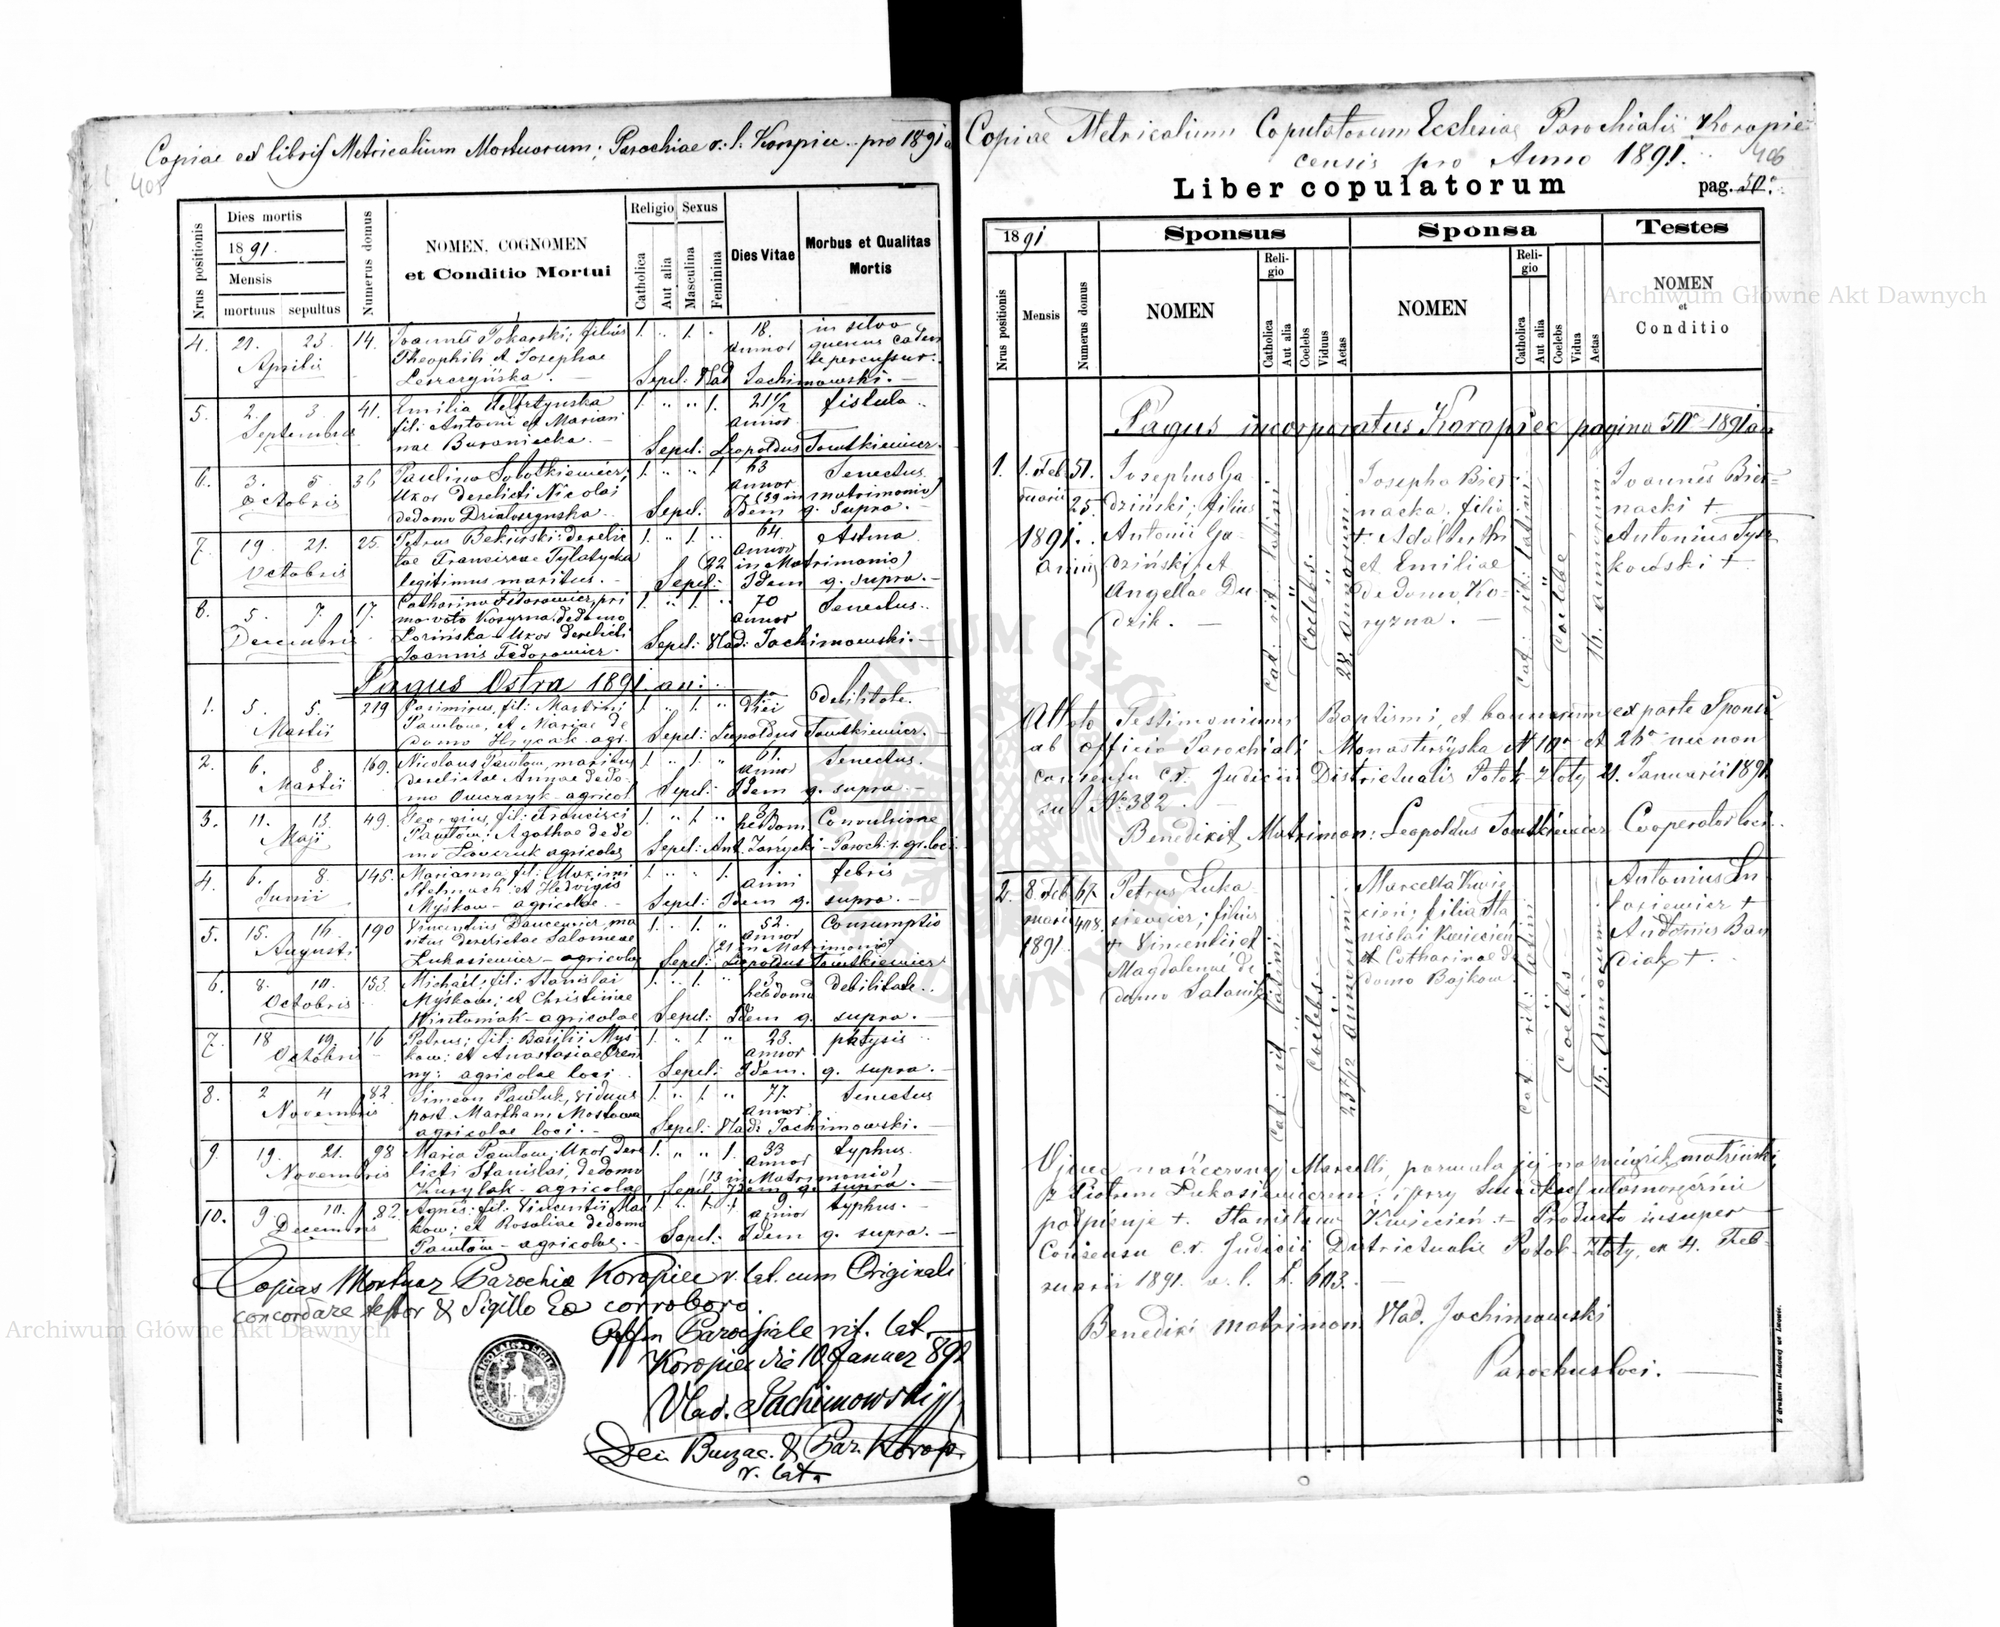 Copiae ex libris Metricalium Mortuorum; Parochiae r. l. Koropiec pro 1891 a
405
Nrus positionis
Dies mortis
1891.
Mensis
mortuus sepultus
Numerus domus
NOMEN, COGNOMEN
et Conditio Mortui
Religio
Catholica
Aut alia
Sexus
Masculina
Feminina
Dies Vitae
Morbus et Qualitas
Mortis
4. 21. 23. 14. Joannes Tokarski; filius 1. „ 1. „ 18. in silva
Aprilis Theophili et Josephae annor quercus caden
Sepel: Vlad Jachimowski. —
5. 2. 3. 41. Emilia 1. „ „ 1. 21 1/2 fistula
Septembris fil: Antonii et Marian annor
nae Buraniecka. — Sepel: Leopoldus Towtkiewicz.
6. 3. 5. 36 Paulina Sobotkiewicz; 1. „ „ 1 63 Senectus
Octobris Uxor derelicti Nicolai annor (39 in matrimonio)
de domo Sepel: Idem q. supra. —
7. 19 21. 25. Petrus Bekiński derelic 1. „ 1. „ 64 Astma
Octobris tae Franciscae Tylatycka annor (22 in Matrimonio)
legitimus maritus. — Sepel: Idem q. supra. —
8. 5. 7. 17. Catharina Fedorowicz, pri 1. „ 1. „ 70 Senectus.
Decembris mo voto Kosyrna de domo annor
Zorińska Uxor derelicti Sepel: Vlad: Jachimowski. —
Joannis Fedorowicz.
Pagus Ostra 1891 an:
1. 5. 5. 219 Casimirus, fil: Martini 1. „ 1. „ diei debilitate
Martii Pawlow, et Mariae de
domo Hrycak agr. Sepel: Leopoldus Towtkiewicz. —
2. 6. 8. 169. Nicolaus Pawlow, maritus 1. „ 1. „ 61. Senectus.
Martii derelictae Annae de do annor
mo Owczaryk agricol Sepel: Idem q. supra. —
3. 11. 13. 49. Georgius, fil: Francisci 1. „ 1. „ 3 Convulsione
Maji Pawlow: Agathae de do hebdom
mo agricolae Sepel: Ant. Zarzycki - Paroch: r. gr. loci
4. 6. 8. 145. Marianna, fil: Maximi 1. „ „ 1. 1. febris
Junii Stelmach et Hedvigis anni
Myskow - agricolae. — Sepel: Idem q. supra. —
5. 15. 16. 190 Vincentius Dancewicz, ma 1. „ 1. „ 52. Consumptio
Augusti ritus derelictae Salomeae annor (21 in Matrimonio)
Lukasiewicz - agricolae Sepel: Leopoldus Towtkiewicz
6. 8. 10. 153 Michael; fil: Stanislai 1. „ 1. „ 3 debilitate..
Octobris Myskow; et Christinae hebdoma
Wintoniak - agricolae Sepel: Idem q. supra. —
7. 18 19. 16 Petrus; fil: Basilii Mys 1. „ 1. „ 23. phtysis
Octobris kow; et Anastasiae annor
agricolae loci Sepel: Idem. q. supra. —
8. 2 4 82 Simeon Pawluk, viduus 1. „ 1. „ 77. Senectus
Novembris post Martham Mostowa annor
agricolae loci. — Sepel: Vlad: Jachimowski. —
9. 19. 21. 98 Maria Pawlow; Uxor dere 1. „ „ 1. 33 typhus.
Novembris licti Stanislai, de domo annor (13 in Matrimonio)
Kurylak - agricolae Sepel: Idem q. supra. —
10. 9 10. 82. Agnes: fil: Vincentii typhus.
Decembris kow; et Rosaliae de domo annor
Pawlow - agricolae. — Sepel: Idem q. supra. —
Copias Mortuor Parochiae Koropiec r. lat. cum Originali
concordare testor & Sigillo Eo corroboro.
Offm Parochiale rit. lat.
Koropiec die 10 Januar 892
Vlad. Jachimowski
Den Buczac. & Par. Korop.
r. lat.
Copiae Metricalium Copulatorum Ecclesiae Parochialis Koropie
censis pro Anno 1891.
406
Liber copulatorum
pag. 50.
1891
Sponsus
Sponsa
Testes
Nrus positionis
Mensis
Numerus domus
NOMEN
Religio
Catholica
Aut alia
Coelebs
Viduus
Aetas
NOMEN
Religio
Catholica
Aut alia
Coelebs
Vidua
Aetas
NOMEN
et
Conditio
Pagus incorporatus Koropiec pagina 50 - 1891 an
1. 1. Feb 51. Josephus Ga Josepha Bier Joannes Bier
ruarii 25. dzinski; filius nacka, filia nacki +
1891. Antonii Ga + Adalberti Antonius Tysz
anni dziński; et et Emiliae kowski +
Angellae Du de domo Ko
dzik. — ryzna. —
Cat: rit: latini
Coelebs.
28. annorum.
Cat: rit: latini
Coelebs
16. annorum
Allato Testimonium Baptismi, et bannorum, ex parte Sponsi
ab Officio Parochiali Monasterzyska N 10 et 26 nec non
consensu c.r. Judicii Districtualis Potok Zloty 21. Januarii 1891.
sub No 382. —
Benedixit Matrimon: Leopoldus Towtkiewicz Cooperator loci.
2. 8. Feb 67. Petrus Luka Marcella Kwie Antonius Lu
ruarii 408. siewicz; filius cień; filia Sta kasiewicz +
1891. + Vincentii et nislai Kwiecień Antonius Ban
Magdalenae de et Catharinae de
domo domo Bojkow.
Cat: rit latini
Coelebs.
23 1/2 annorum
Cat: rit: latini
Coelebs
15. Annorum
Ojciec narzeczonej Marcelli, pozwala jej na małżeński
z Piotrem Łukasiewiczem; i przy własnoręcznie
podpisuje +. Stanisław Kwiecień + Producto insuper
Consensu c.r. Judicii Districtualis Potok-Zloty, ex 4. Feb-
ruarii 1891. a. l. L. 603. —
Benedixi matrimon. Vlad. Jachimowski
Parochus loci. —
Z drukarni Ludowej we Lwowie.
Archiwum Główne Akt Dawnych
Archiwum Główne Akt Dawnych
ARCHIWUM GŁÓWNE AKT DAWNYCH